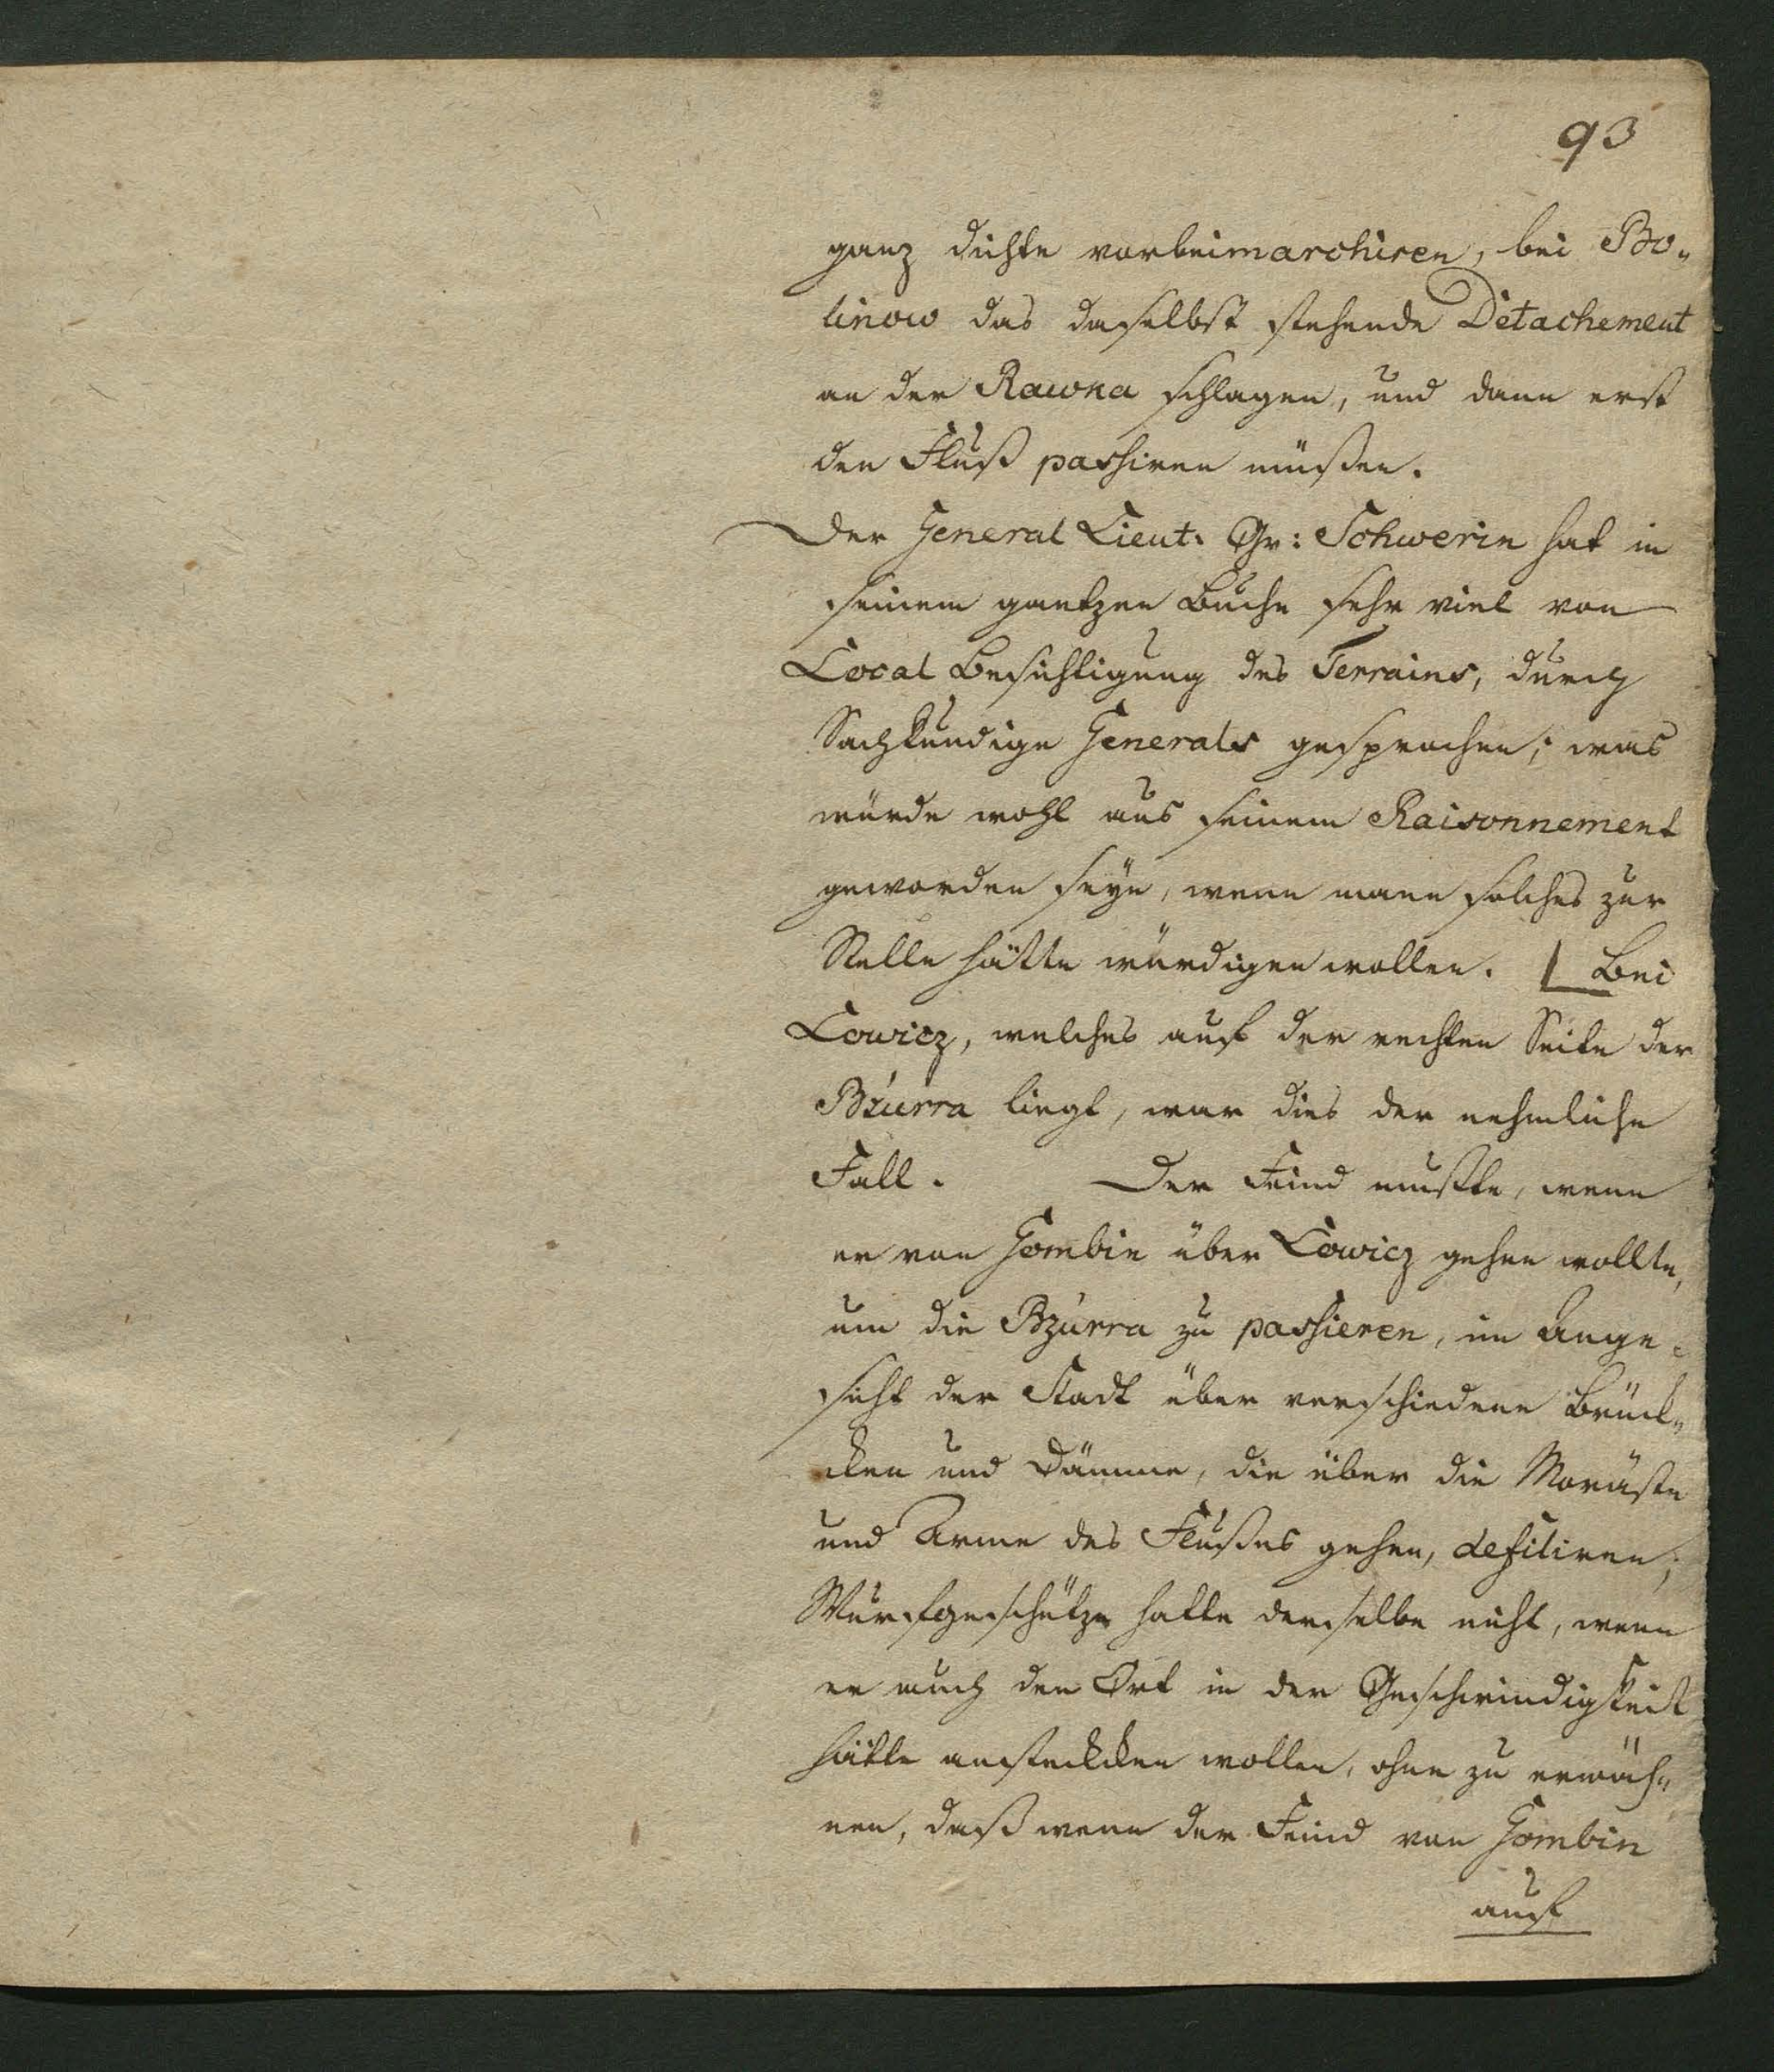 93
ganz dichte vorbeimarchiren, bei Bo„
linow das daselbst stehende Détachement
an der Rawka schlagen, und dann erst
den Fluß passiren müßen.
Der General Lieut. Gr: Schwerin hat in
seinem gantzen Buche sehr viel von
Local Besichtigung des Terrains, durch
Sachkundige Generals gesprochen; was
würde wohl aus seinem Raisonnement
geworden seyn, wenn mann solches zur
Stelle hätte würdigen wollen. Bei
Lowicz, welches auf der rechten Seite der
Bzurra liegt, war dies der nehmliche
Fall. Der Feind mußte, wenn
er von Gombin über Lowicz gehen wollte,
um die Bzurra zu passieren, im Ange¬
sicht der Stadt über verschiedene Brück„
cken und Dämme, die über die Moräste
und Arme des Flußes gehen, defiliren;
Wurfgeschütze hatte derselbe nicht, wenn
er auch den Ort in der Geschwindigkeit
hätte ansteckken wollen, ohne zu erwäh„
nen, daß wenn der Feind von Gombin
auf